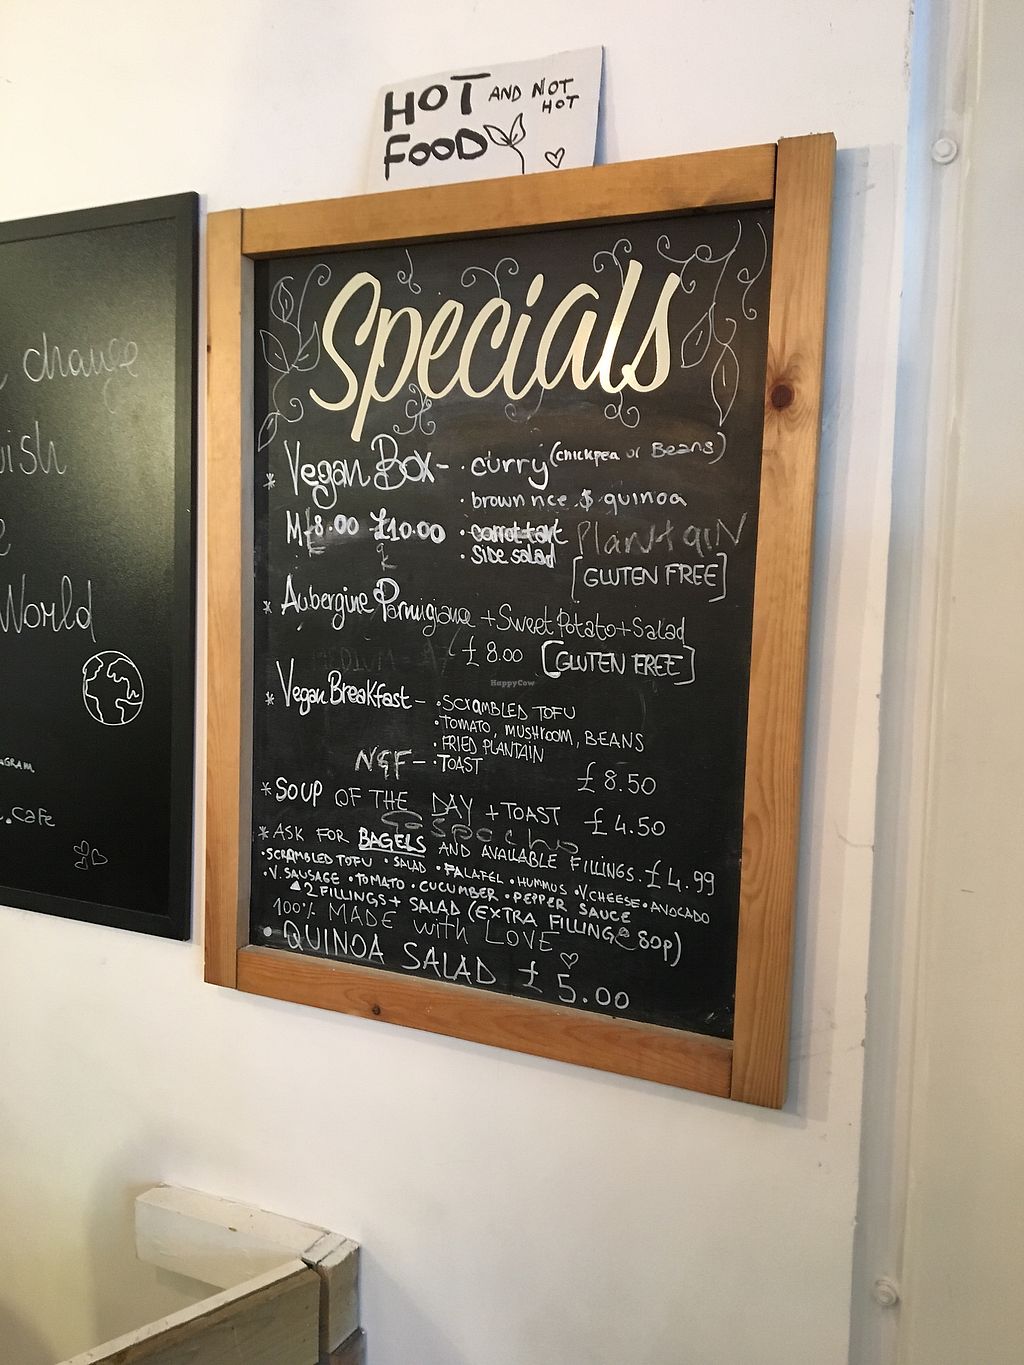 HOT AND NOT HOT
FOOD
Specials
* Vegan Box - · curry (chickpea or Beans)
· brown rice & quinoa
M £8.00 £10.00 · carrot tart Plantain
· side salad [GLUTEN FREE]
* Aubergine Parmigiana + Sweet Potato + Salad
£8.00 [GLUTEN FREE]
HappyCow
* Vegan Breakfast - · SCRAMBLED TOFU
· TOMATO, MUSHROOM, BEANS
· FRIED PLANTAIN
NGF - · TOAST £8.50
* SOUP OF THE DAY + TOAST £4.50
* ASK FOR BAGELS AND AVAILABLE FILLINGS. £4.99
· SCRAMBLED TOFU · SALAD · FALAFEL · HUMMUS · V. CHEESE · AVOCADO
· V. SAUSAGE · TOMATO · CUCUMBER · PEPPER SAUCE
2 FILLINGS + SALAD (EXTRA FILLING 80p)
100% MADE with LOVE
· QUINOA SALAD £5.00
change
wish
World
.cafe